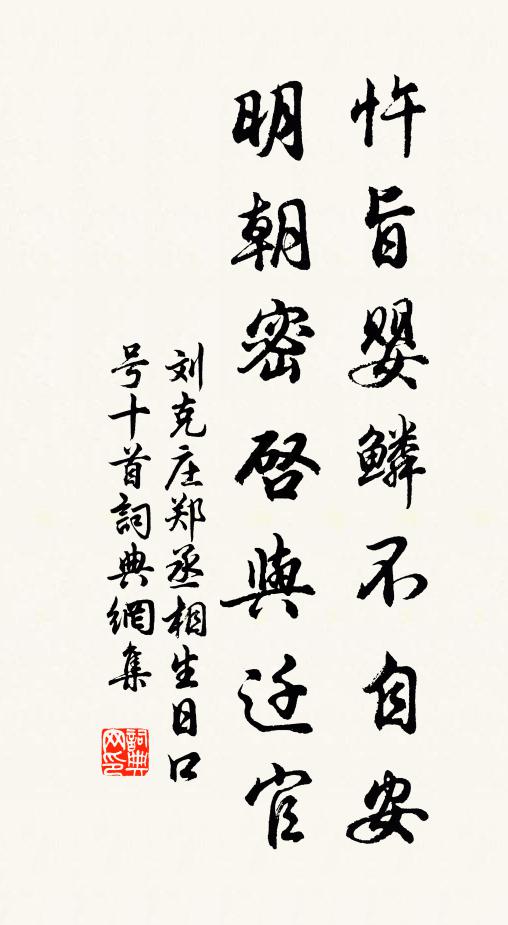 忤旨婴鳞不自安
明朝密启與迁官
刘克庄郑丞相生日口
号十首詞典網集
詞典网印